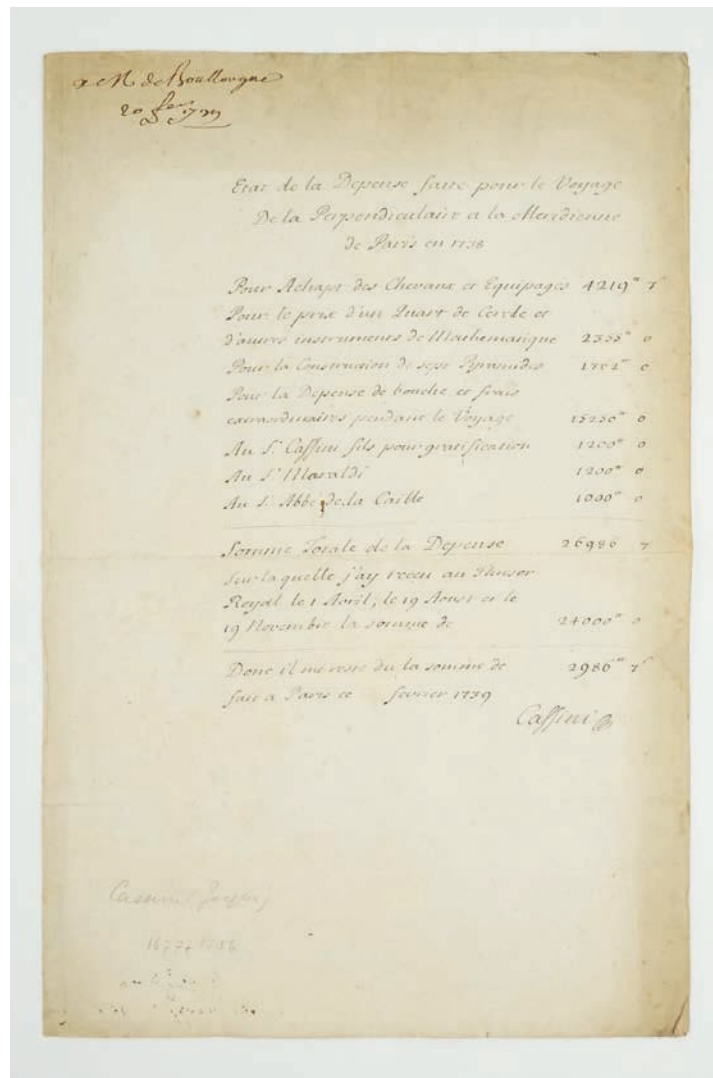 a M. de Boullongne
20 fer 1739
Etat de la Depense faite pour le Voyage
De la Perpendiculaire a la Meridienne
de Paris en 1738
Pour Achapt des Chevaux et Equipages 4219tt 7s
Pour le prix d'un Quart de Cercle et
d'autres instruments de Mathematique 2355tt 0
Pour la Construction de sept Pyramides 1762tt 0
Pour la Depense de bouche et frais
extraordinaires pendant le Voyage 15250tt 0
Au Sr Cassini fils pour gratification 1200tt 0
Au Sr Maraldi 1200tt 0
Au Sr Abbé de la Caille 1000tt 0
Somme Totale de la Depense 26986 7
Sur laquelle j'ay receu au Thresor
Royal le 1 Avril, le 19 Aoust et le
19 Novembre la somme de 24000tt 0
Donc il me reste du la somme de 2986tt 7s
fait a Paris ce fevrier 1739
Cassini
Cassini (Jacques)
1677 1756